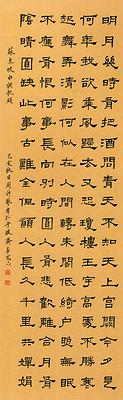 明月幾時有把酒問青天不知天上宮闕今夕是
何年我欲乘風歸去又恐瓊樓玉宇高處不勝寒
起舞弄清影何似在人間轉朱閣低綺戶照無眠
不應有恨何事長向別時圓人有悲歡離合月有
陰晴圓缺此事古難全但願人長久千里共嬋娟
蘇東坡水調歌頭
己亥秋日